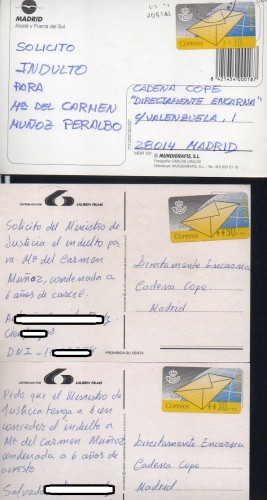 MADRID
Alcalá y Puerta del Sol
SOLICITO
INDULTO
PARA
Mª DEL CARMEN
MUÑOZ PERALBO
Correos
8 421454 000187
CADENA COPE
"DIRECTAMENTE ENCARNA"
C/VALENZUELA, 1
28014 MADRID
© MUNDIGRAFIS, S.L.
DISTRIBUIDA POR
LAUREN FILMS
Solicito del Ministro de
Justicia el indulto pa
ra Mª del Carmen
Muñoz, condenada a
6 años de carcel.
DNI -
Correos
Directamente Encarna
Cadena Cope
Madrid
PROHIBIDA SU VENTA
DISTRIBUIDA POR
LAUREN FILMS
Pido que el Ministro de
Justicia tenga a bien
conceder el indulto a
Mª del Carmen Muñoz
condenada a 6 años de
arresto.
Salvador
Correos
Directamente Encarna
Cadena Cope.
Madrid